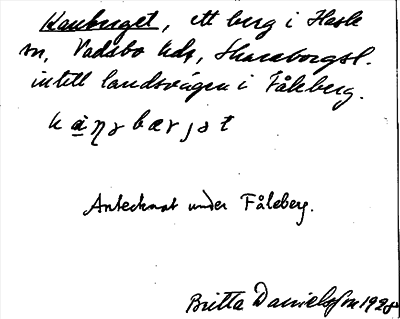 Kanberget, ett berg i Hasle
sn, Vadsbo hds, Skaraborgsl.
intill landsvägen i Fåleberg.
Antecknat under Fåleberg.
Britta Danielsson 1928